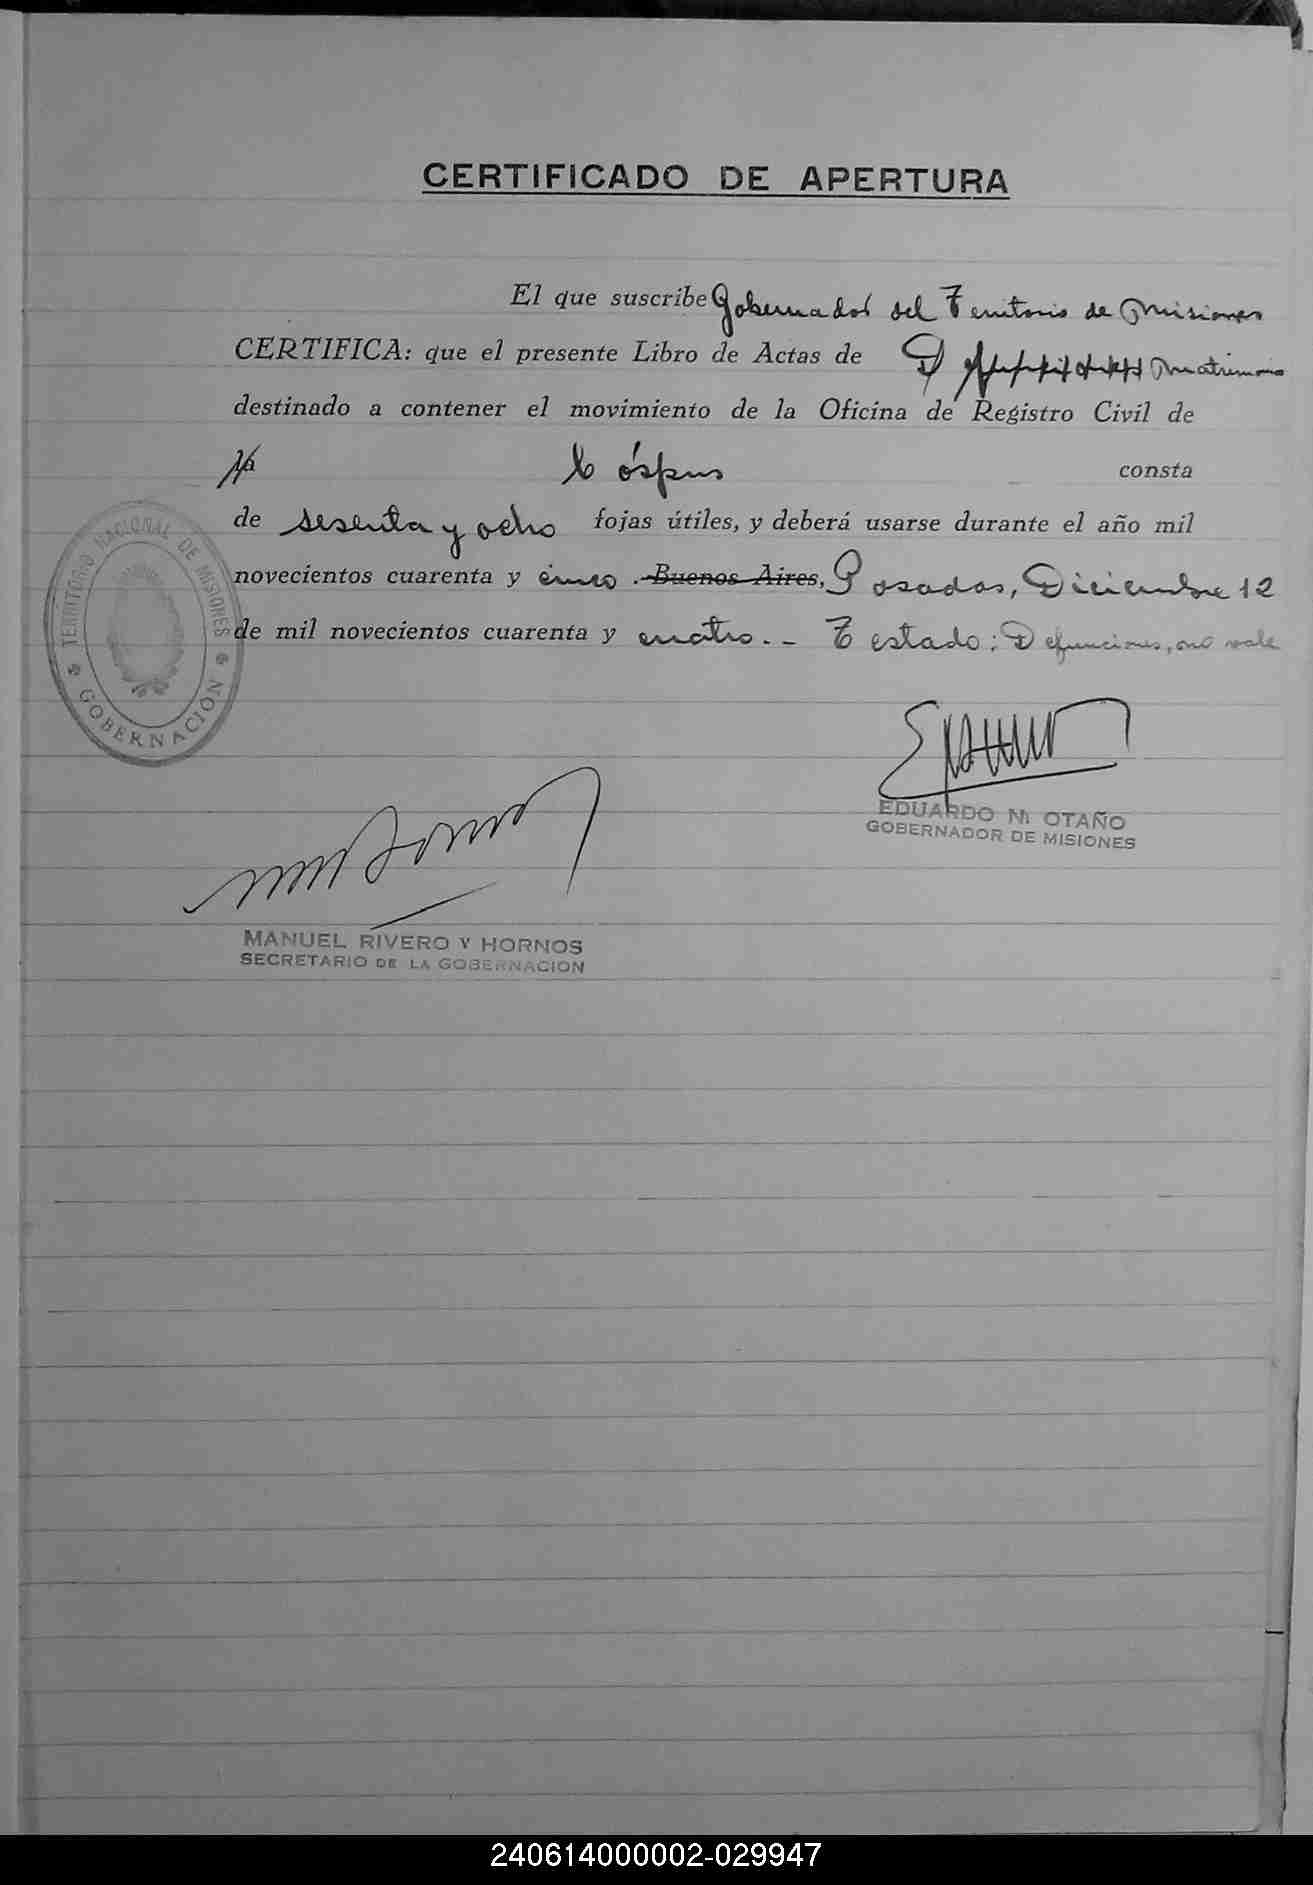 CERTIFICADO DE APERTURA
El que suscribe Gobernador del Territorio de Misiones
CERTIFICA: que el presente Libro de Actas de Defunciones Matrimonio
destinado a contener el movimiento de la Oficina de Registro Civil de
Córpus consta
de sesenta y ocho fojas útiles, y deberá usarse durante el año mil
novecientos cuarenta y cinco. Buenos Aires, Posadas, Diciembre 12
de mil novecientos cuarenta y cuatro.- Testado: Defunciones, no vale
TERRITORIO NACIONAL DE MISIONES
GOBERNACION
EDUARDO M. OTAÑO
GOBERNADOR DE MISIONES
MANUEL RIVERO Y HORNOS
SECRETARIO DE LA GOBERNACION
240614000002-029947